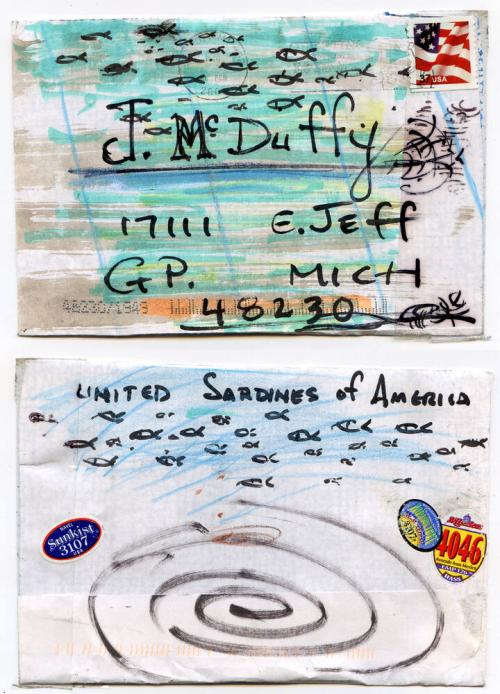 USA
J. McDuffy
17111 E. JEFF
G P. MICH
48230
48230/1949
UNITED SARDINES of AMERICA
NAVEL
Sunkist
3107
USA
4046
HASS